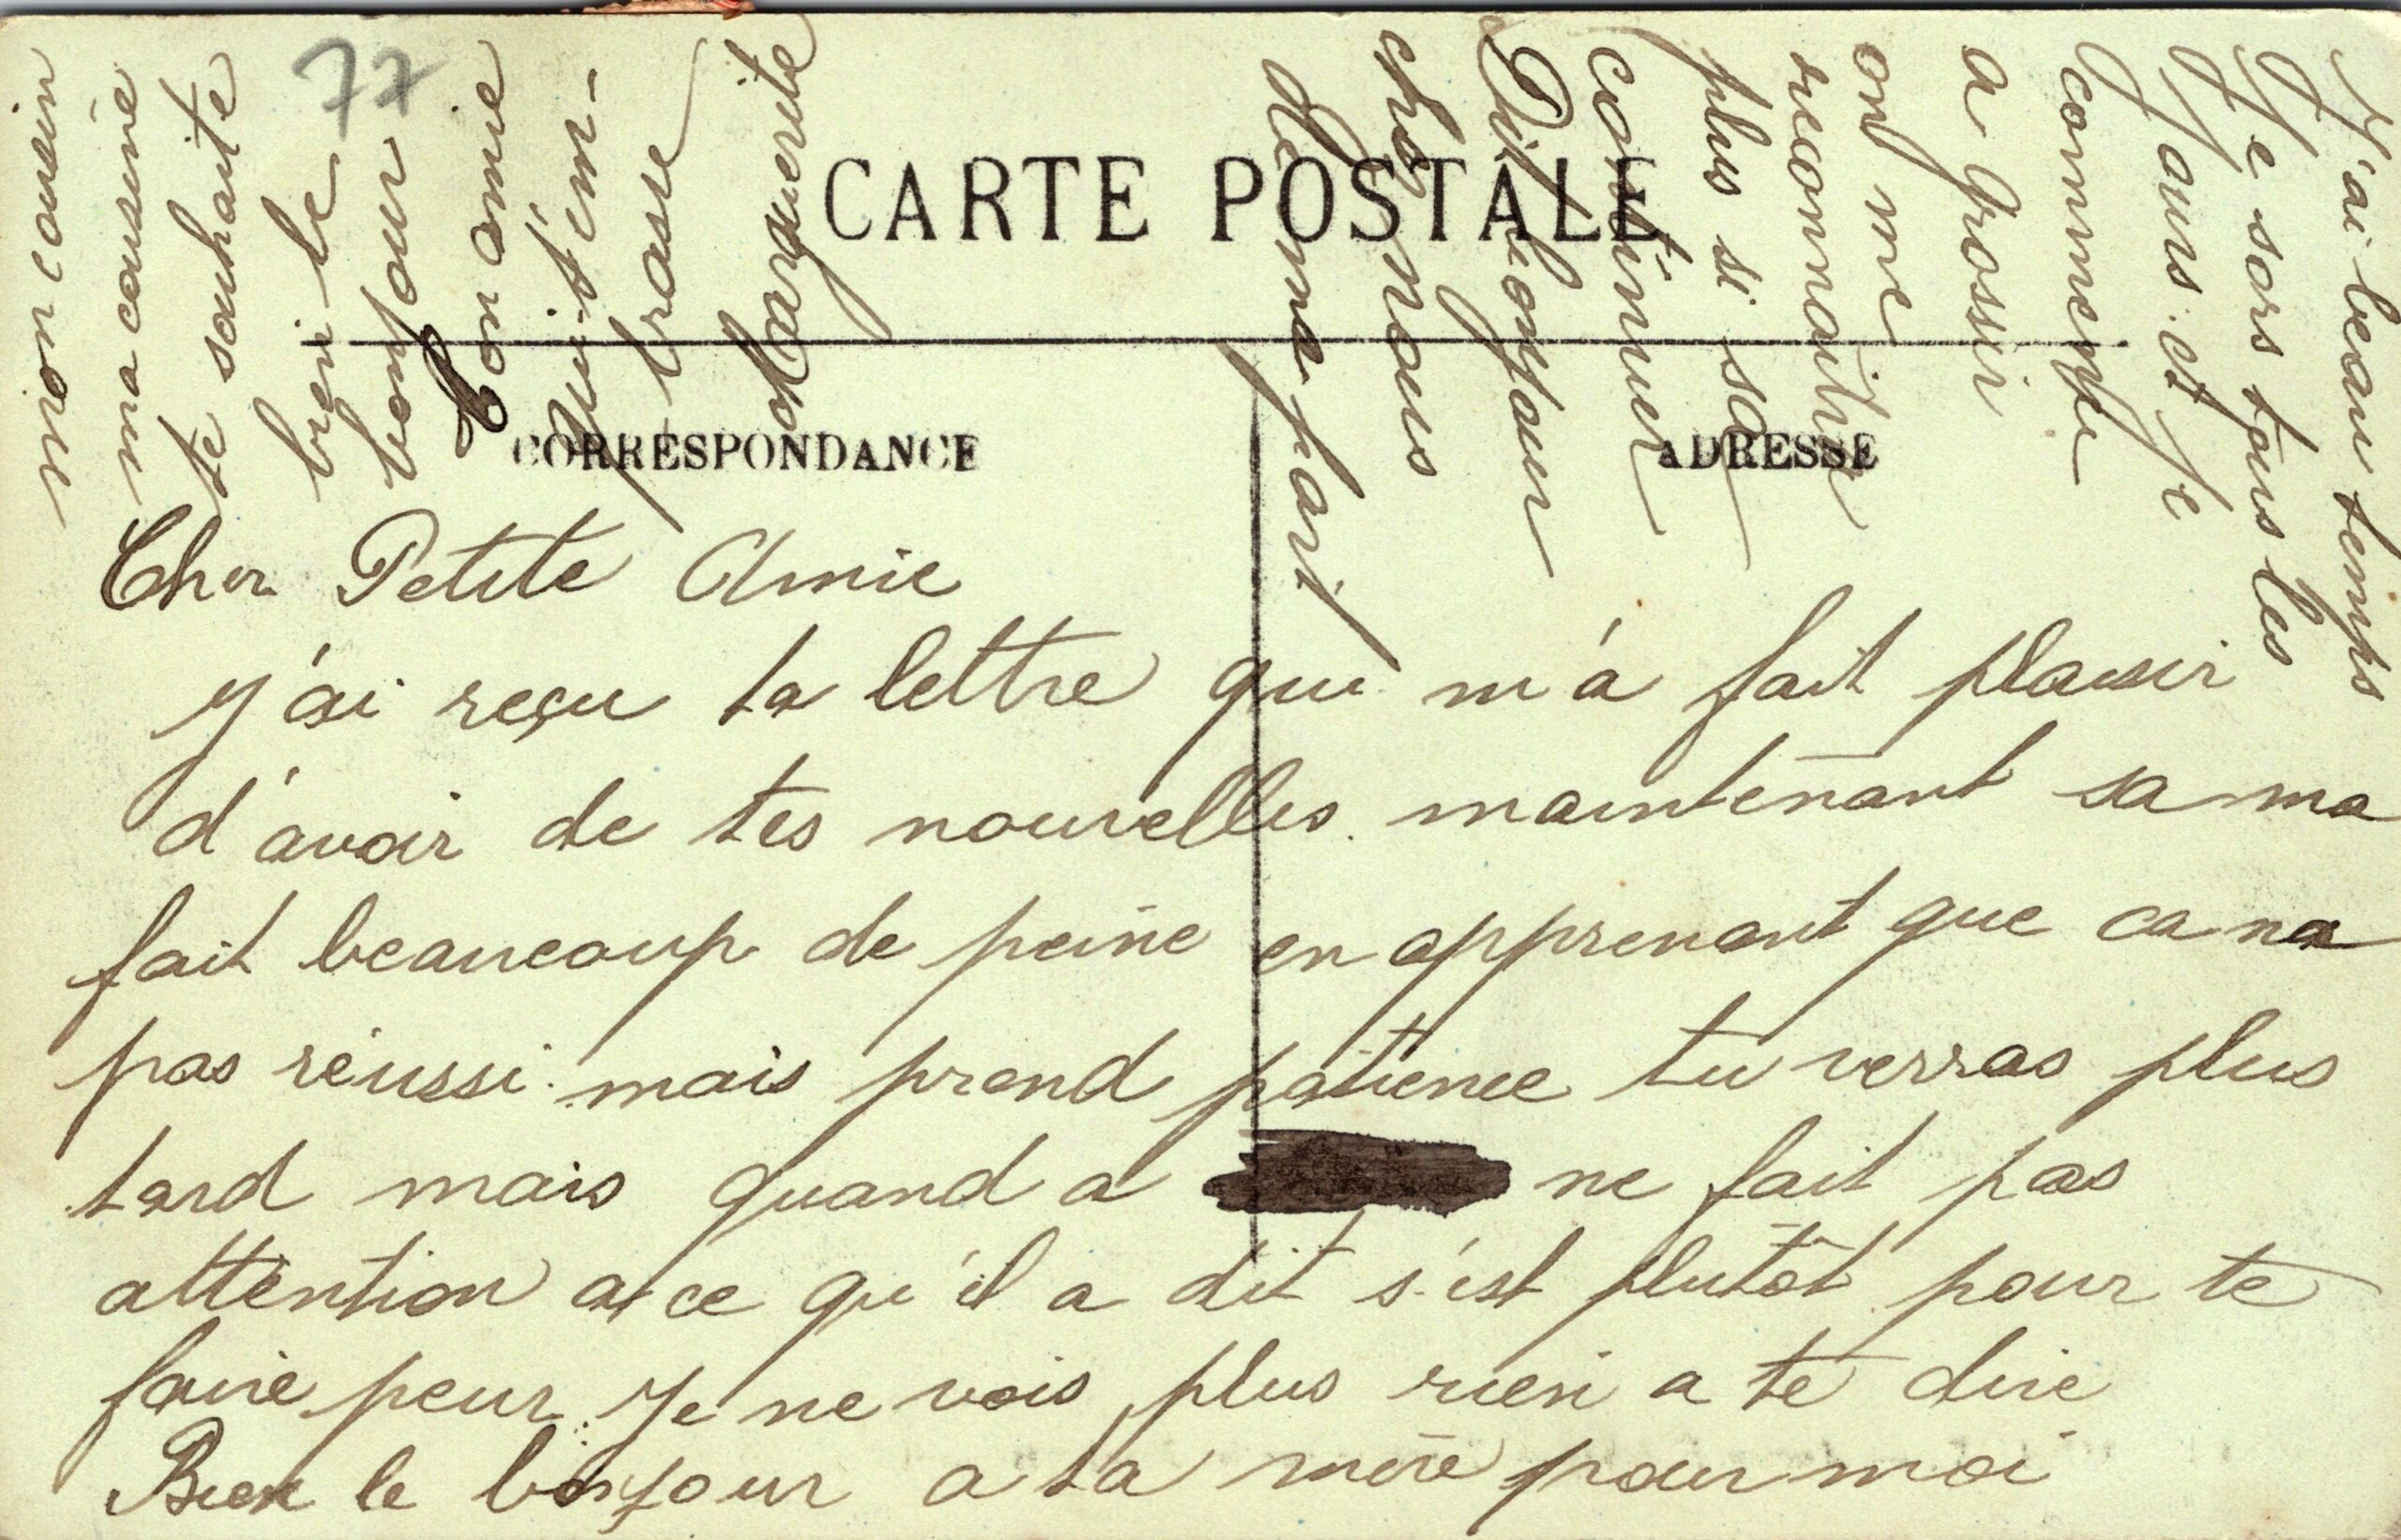 77
CARTE POSTALE
CORRESPONDANCE
ADRESSE
Cher Petite Amie
j'ai reçu ta lettre qui m'a fait plaisir
d'avoir de tes nouvelles. maintenant sa ma
fait beaucoup de peine en apprenant que ca na
pas réussi. mais prend patience tu verras plus
tard mais quand a ne fait pas
attention a ce qu'il a dit s'est plutôt pour te
faire peur. Je ne vois plus rien a te dire
Bien le bonjour a ta mère pour moi
J'ai beau temps
Je sors tous les
Jours et Je
commence
a grossir
on me
reconnaitre
plus si sa
continuer
Dit bonjour
chez nous
de ma part
mon cousin
ma cousine
te souhaite
bien le
bonjour
Ton amie
qui t'em-
brasse
Marguerite